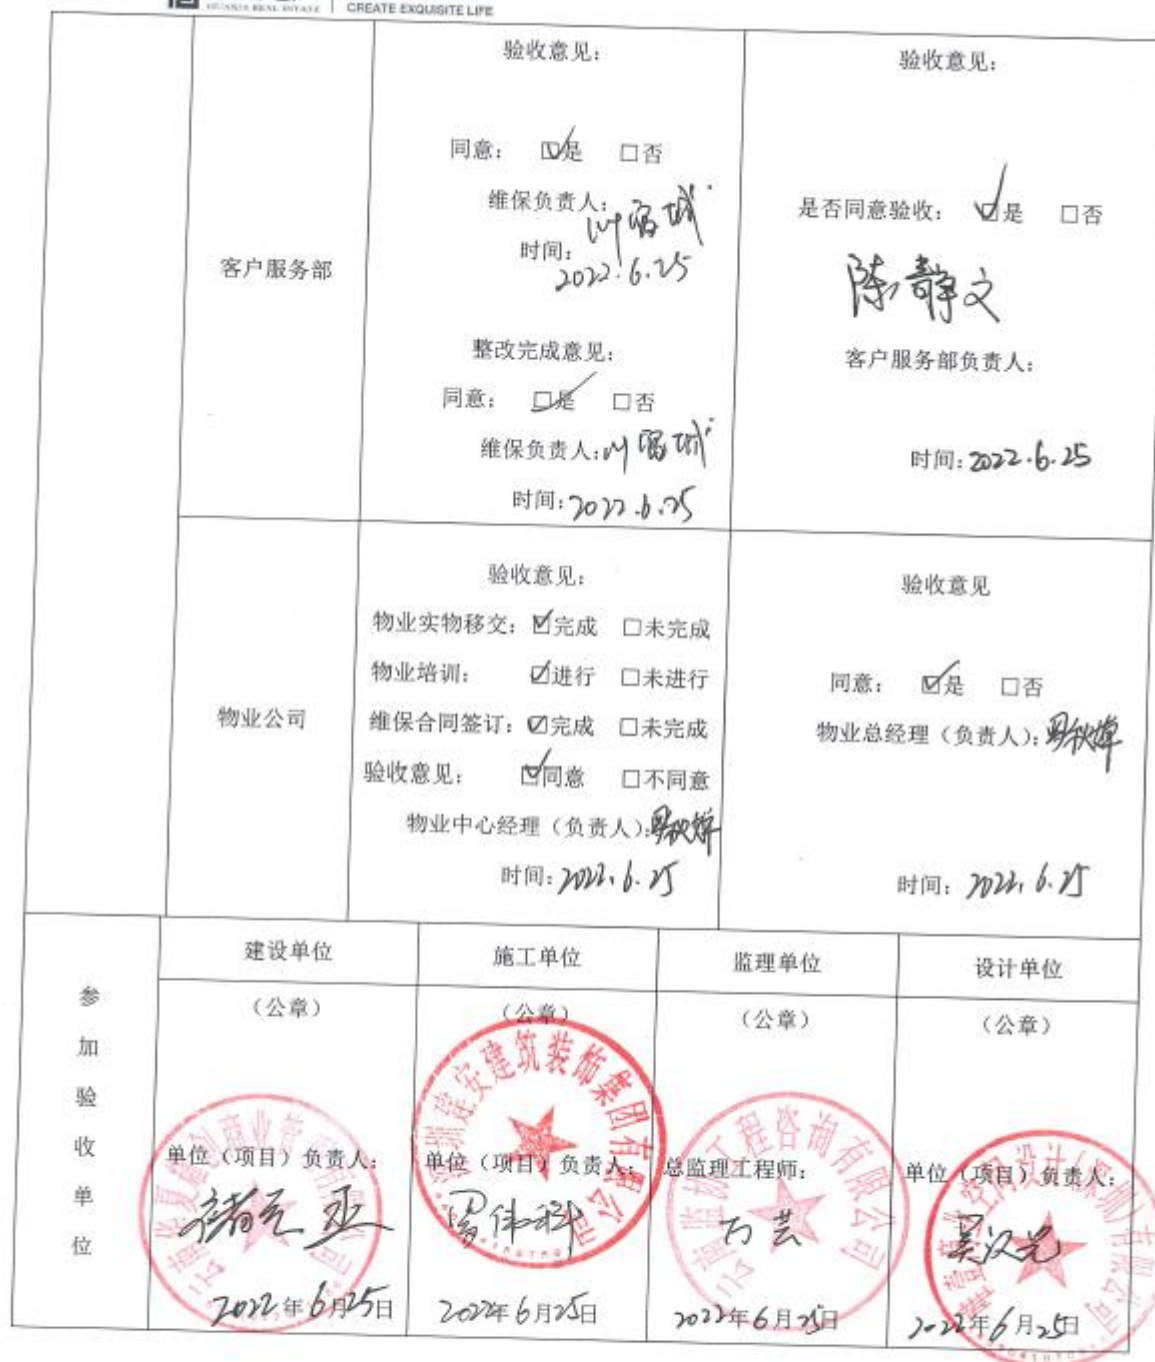 HUANJIA REAL ESTATE
CREATE EXQUISITE LIFE
客户服务部
验收意见：
同意： ☑是 □否
维保负责人：
时间：
2022.6.25
整改完成意见：
同意： ☑是 □否
维保负责人：
时间：2022.6.25
验收意见：
是否同意验收： ☑是 □否
陈静文
客户服务部负责人：
时间：2022.6.25
物业公司
验收意见：
物业实物移交：☑完成 □未完成
物业培训： ☑进行 □未进行
维保合同签订：☑完成 □未完成
验收意见： ☑同意 □不同意
物业中心经理（负责人）：
时间：2022.6.25
验收意见
同意： ☑是 □否
物业总经理（负责人）：
时间：2022.6.25
参加验收单位
建设单位
施工单位
监理单位
设计单位
（公章）
（公章）
（公章）
（公章）
单位（项目）负责人：
单位（项目）负责人：
总监理工程师：
单位（项目）负责人：
建筑装饰集团有限公司
工程咨询有限公司
万芸
吴汉光
2022年6月25日
2022年6月25日
2022年6月25日
2022年6月25日